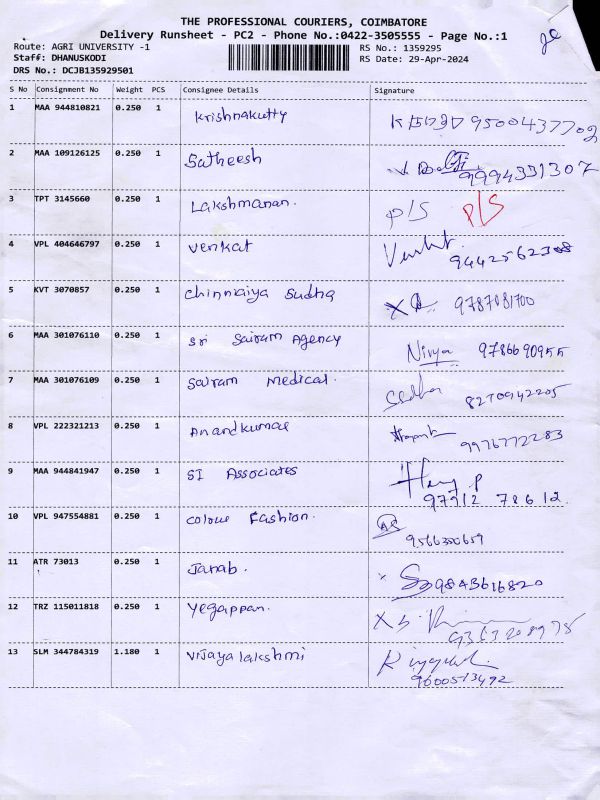 THE PROFESSIONAL COURIERS, COIMBATORE
Delivery Runsheet - PC2 - Phone No.:0422-3505555 - Page No.:1
Route: AGRI UNIVERSITY -1 RS No.: 1359295
Staff: DHANUSKODI RS Date: 29-Apr-2024
DRS No.: DCJB135929501
S No Consignment No Weight PCS Consignee Details Signature
1 MAA 944810821 0.250 1 Krishnakutty 9500437702
2 MAA 109126125 0.250 1 Satheesh 9994331307
3 TPT 3145660 0.250 1 Lakshmanan. P/S P/S
4 VPL 404646797 0.250 1 Venkat
5 KVT 3070857 0.250 1 Chinnaiya Sudha
6 MAA 301076110 0.250 1 Sri Sairam Agency Nivya 9786690955
7 MAA 301076109 0.250 1 Sairam Medical. 8270942205
8 VPL 222321213 0.250 1 Anandkumar 9976772283
9 MAA 944841947 0.250 1 SI Associates 97912 78612.
10 VPL 947554881 0.250 1 Colour Fashion.
11 ATR 73013 0.250 1 Janab. 9843616820
12 TRZ 115011818 0.250 1 Yegappan.
13 SLM 344784319 1.180 1 Vijayalakshmi 9600513492